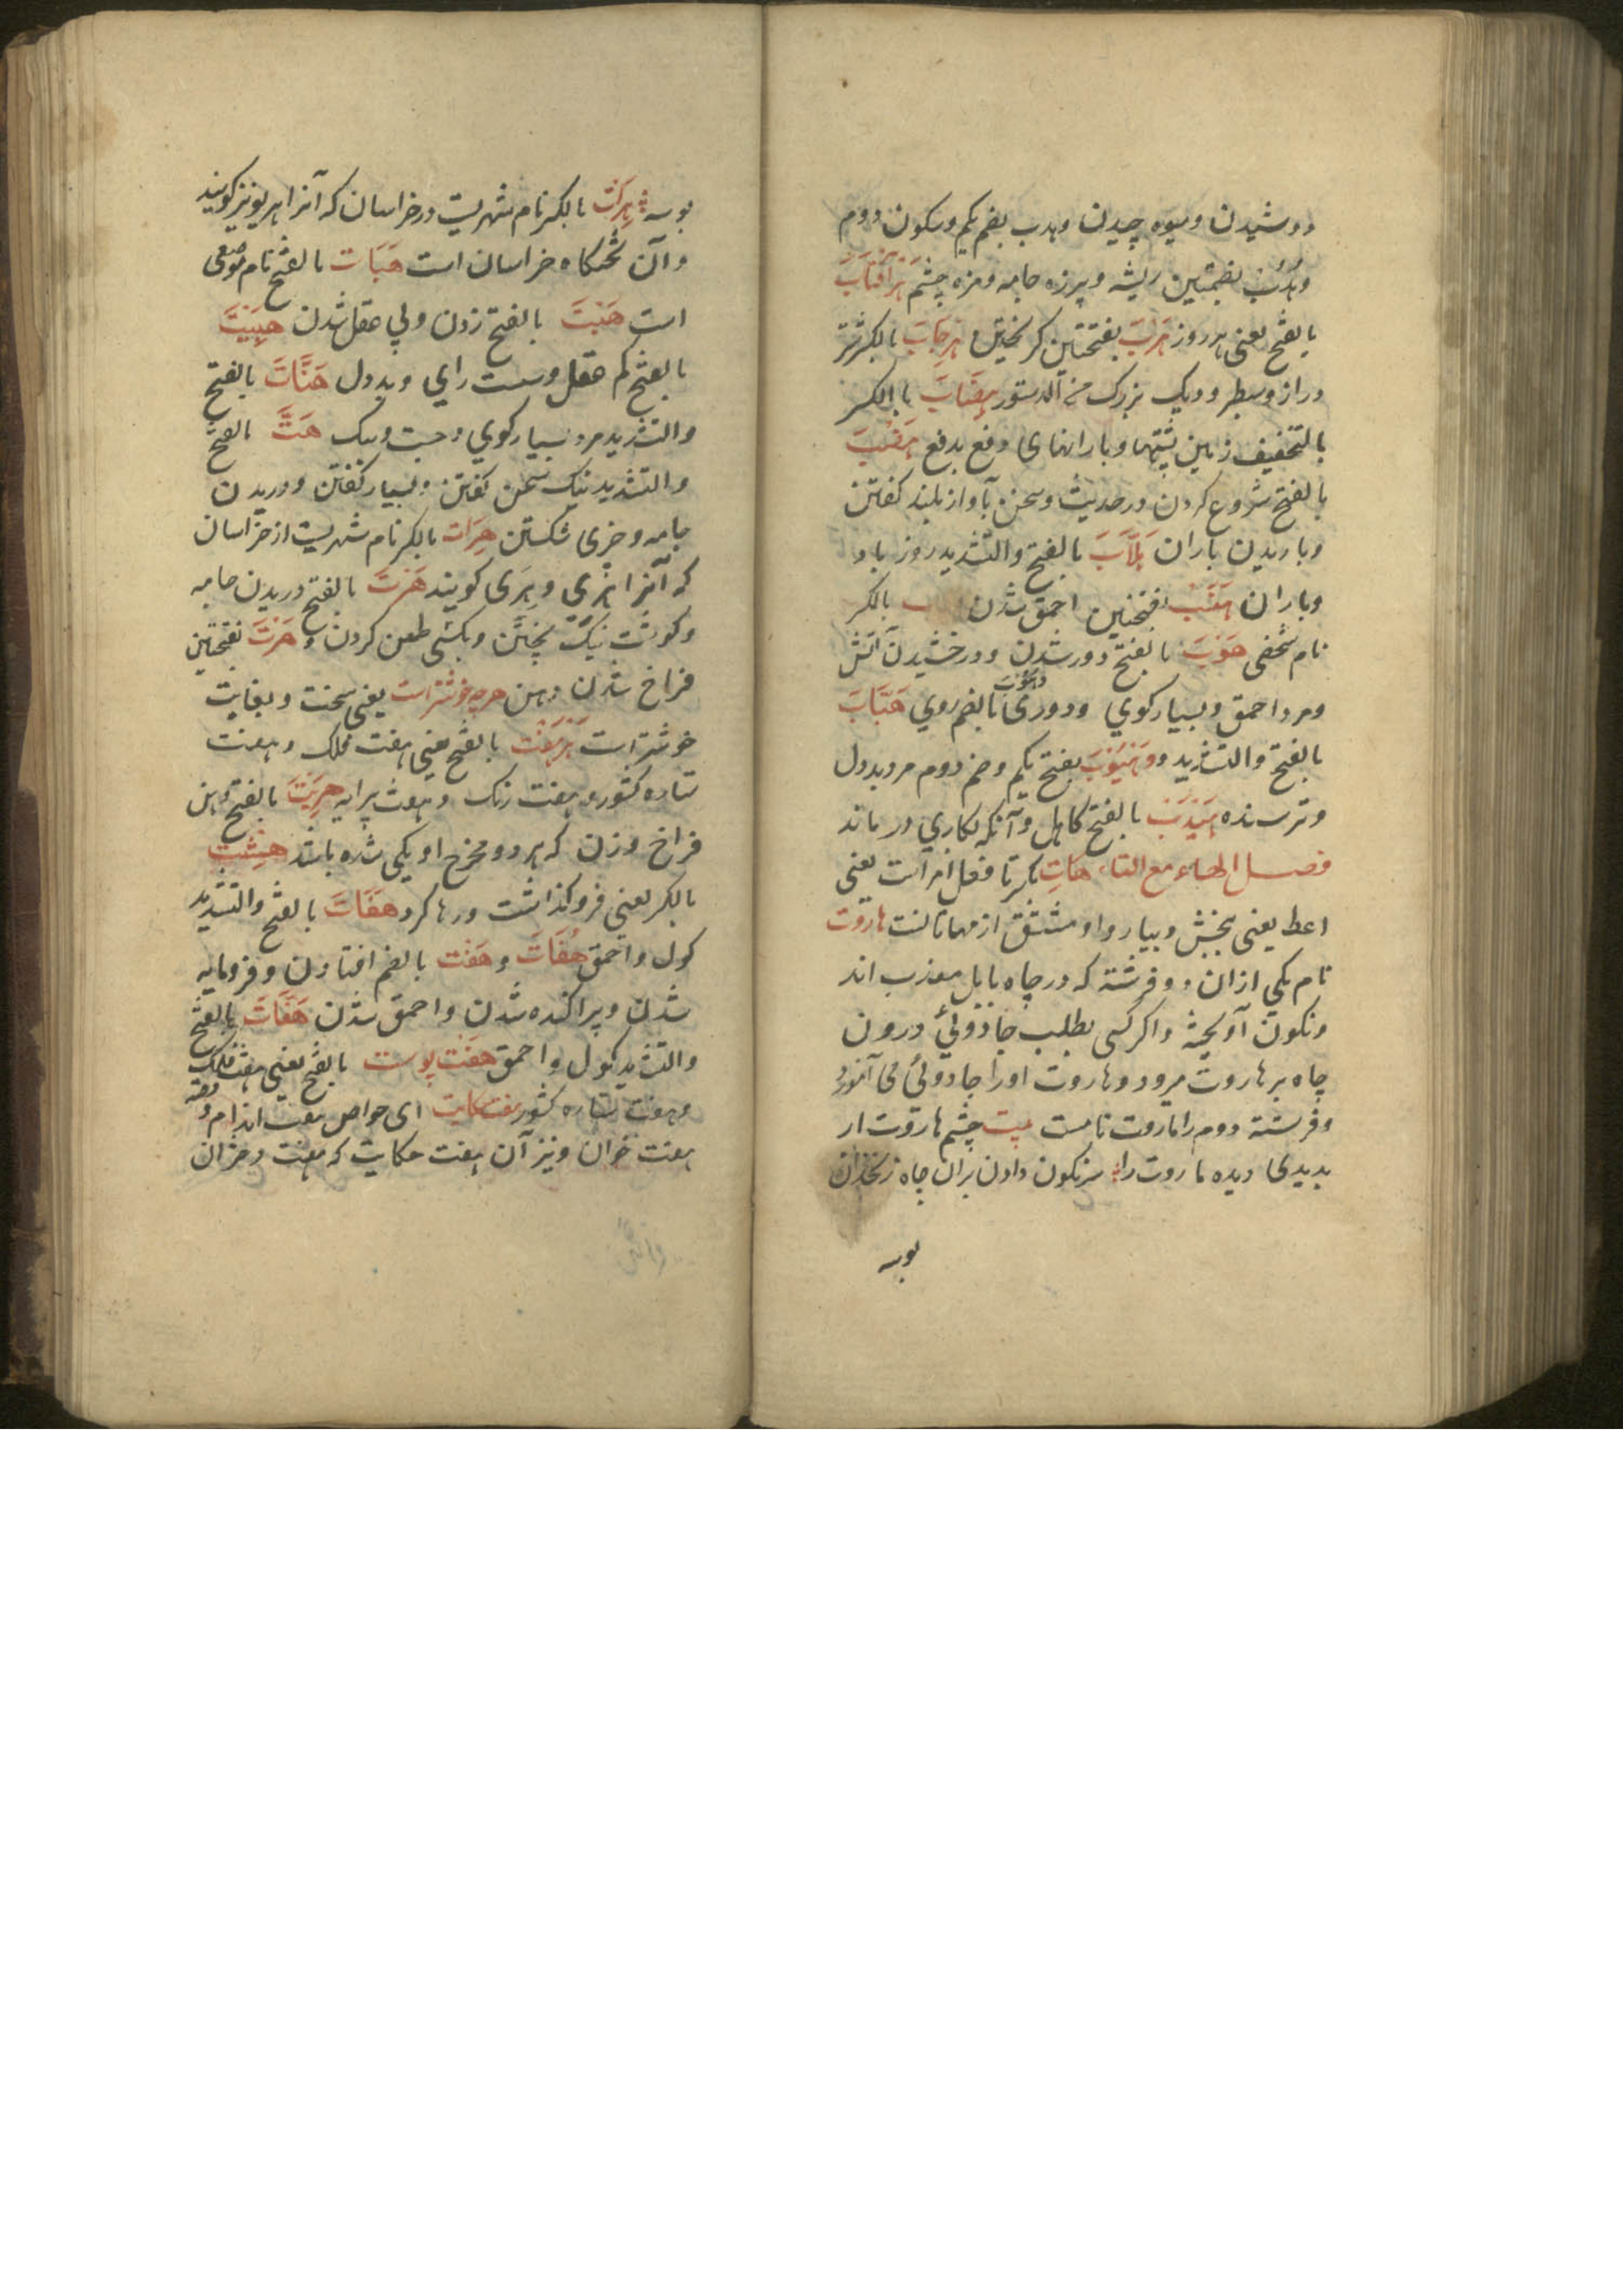 دوشیدن و میوه چیدن و هدب بضم یکم و سکون دوم
و هُدُب بضمتین ریشه و پرزه جامه و مژه چشم هَرآفتاب
بالفتح یعنی هر روز هَرَبَ بفتحتین کریختن هِرجابَ بالکسر شتر
دراز و سطبر و دیک بزرک من الدستور هِضَابَ بالکسر
بالتخفیف زمین پشتها و بارانهای دفع بدفع هَضْبَ
بالفتح شروع کردن در حدیث و سخن بآواز بلند کفتن
و باریدن باران هَلَّابَ بالفتح والتشدید روز باد
و باران هَنَبَ بفتحتین احمق شدن بالکسر
نام شخصی هَوْبَ بالفتح دور شدن و درخشیدن آتش
و مرد احمق و بسیار کوی و دوری بالضم روی هَیَّابَ
بالفتح والتشدید و هَیُوْبَ بفتح یکم و ضم دوم مرد بددل
و ترسنده هَیْدَبَ بالفتح کاهل و آنکه بکاری در ماند
فصل الهاء مع التاء هَاتِ بکسر تا فعل امر است یعنی
اعط یعنی ببخش و بیار و او مشتق از مهاتاتست هاروت
نام یکی از ان دو فرشته که در چاه بابل معذب اند
و نکون آویخته و اکر کسی بطلب جادوئی درون
چاه بر هاروت میرود و هاروت اورا جادوئی می آموزد
و فرشته دوم را ماروت نامست بیت چشم هاروت ار
بدیدی دیده ماروت را سرنکون دادن بران چاه زنخدان
بوسه
بوسه هِرَتْ بالکسر نام شهریست در خراسان که آنرا هریو نیز کویند
و آن تختکاه خراسان است هَبَات بالفتح نام موضعی
است هَبْتَ بالفتح زدن و بی عقل شدن هَبِیْتَ
بالفتح کم عقل و سست رای و بددل هَتَّاتَ بالفتح
والتشدید مرد بسیار کوی و چست و سبک هَتَّ بالفتح
والتشدید نیک سخن کفتن و بسیار کفتن و دریدن
جامه و چیزی شکستن هِرَات بالکسر نام شهریست از خراسان
که آنرا هری و هِرَی کویند هَرْتَ بالفتح دریدن جامه
و کوشت نیک پختن و بکسی طعن کردن و هَرَتَ بفتحتین
فراخ شدن دهن هرچه خوشتر است یعنی سخت و بغایت
خوشتر است هَرهَفْت بالفتح یعنی هفت فلک و هفت
ستاره کشور و هفت رنک و هفت پیرایه هَرِیْتَ بالفتح دهن
فراخ و زن که هر دو مخرج او یکی شده باشد هِشْتَ
بالکسر یعنی فرو کذاشت و رها کرد هَفَاتَ بالفتح والتشدید
کول و احمق هُفَاتَ و هَفْت بالضم افتادن و فرومایه
شدن و پراکنده شدن و احمق شدن هَفَّاتَ بالفتح
والتشدید کول و احمق هَفْت پوست بالفتح یعنی هفت فلک
و هفت ستاره کشور هفت حکایت ای خواص هفت اندام و قصه
هفت خوان و نیز آن هفت حکایت که هفت دختران